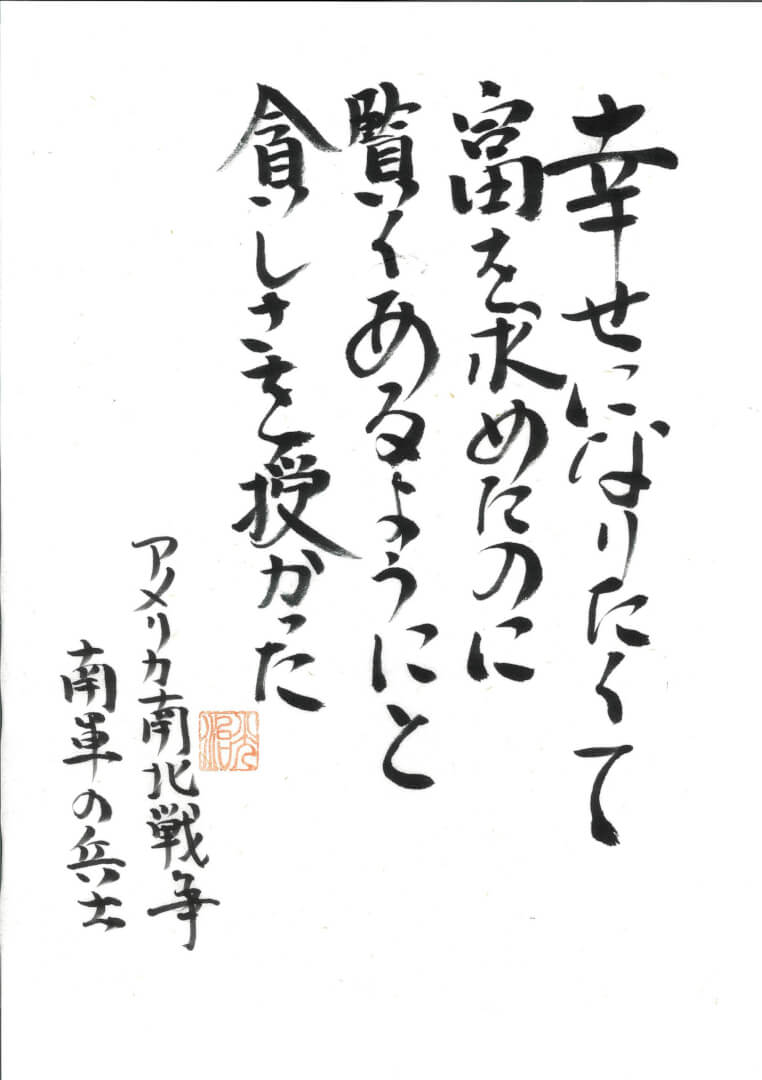 幸せになりたくて
富を求めたのに
賢くあるようにと
貧しさを授かった
アメリカ南北戦争
南軍の兵士